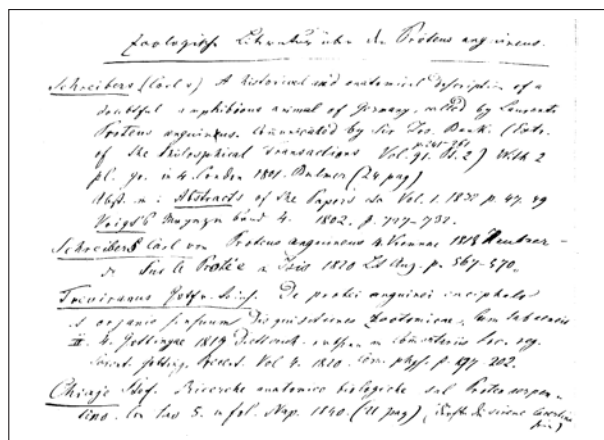 Zoologische Literatur über den Proteus anguineus.
Schreibers (Carl v) A historical and anatomical Description of a
doubtful amphibious animal of Germany, called by Laurenti
Proteus anguineus. Communicated by Sir Jos. Bank. (Extr.
p. 241-261
of the Philosophical Transactions Vol. 91. Pt. 2) With 2
pl. gr. in 4. London 1801. Bulmer (24 pag)
Abst. in: Abstracts of the Papers in Vol. 1. 1832 p. 47. 49
Voigt's Magazin band 4. 1802. p.
Schreibers Carl von Proteus anguineus 4. Viennae 1818
Sur le Protée in Isis 1820 Lit Anz. p. 567-570.
Treviranus Gottfr. De protei anguinei encephalo
et organis sensuum Disquisitiones zootomicae. Cum tabaeneis
4. Gottingae 1819 in
Vol 4. 1820. phys. p. 197-202.
Chiaje Stef. Ricerche anatomico biologiche sul Proteo serpen-
tino. Con tav 5. in fol. Nap. 1840. (21 pag)